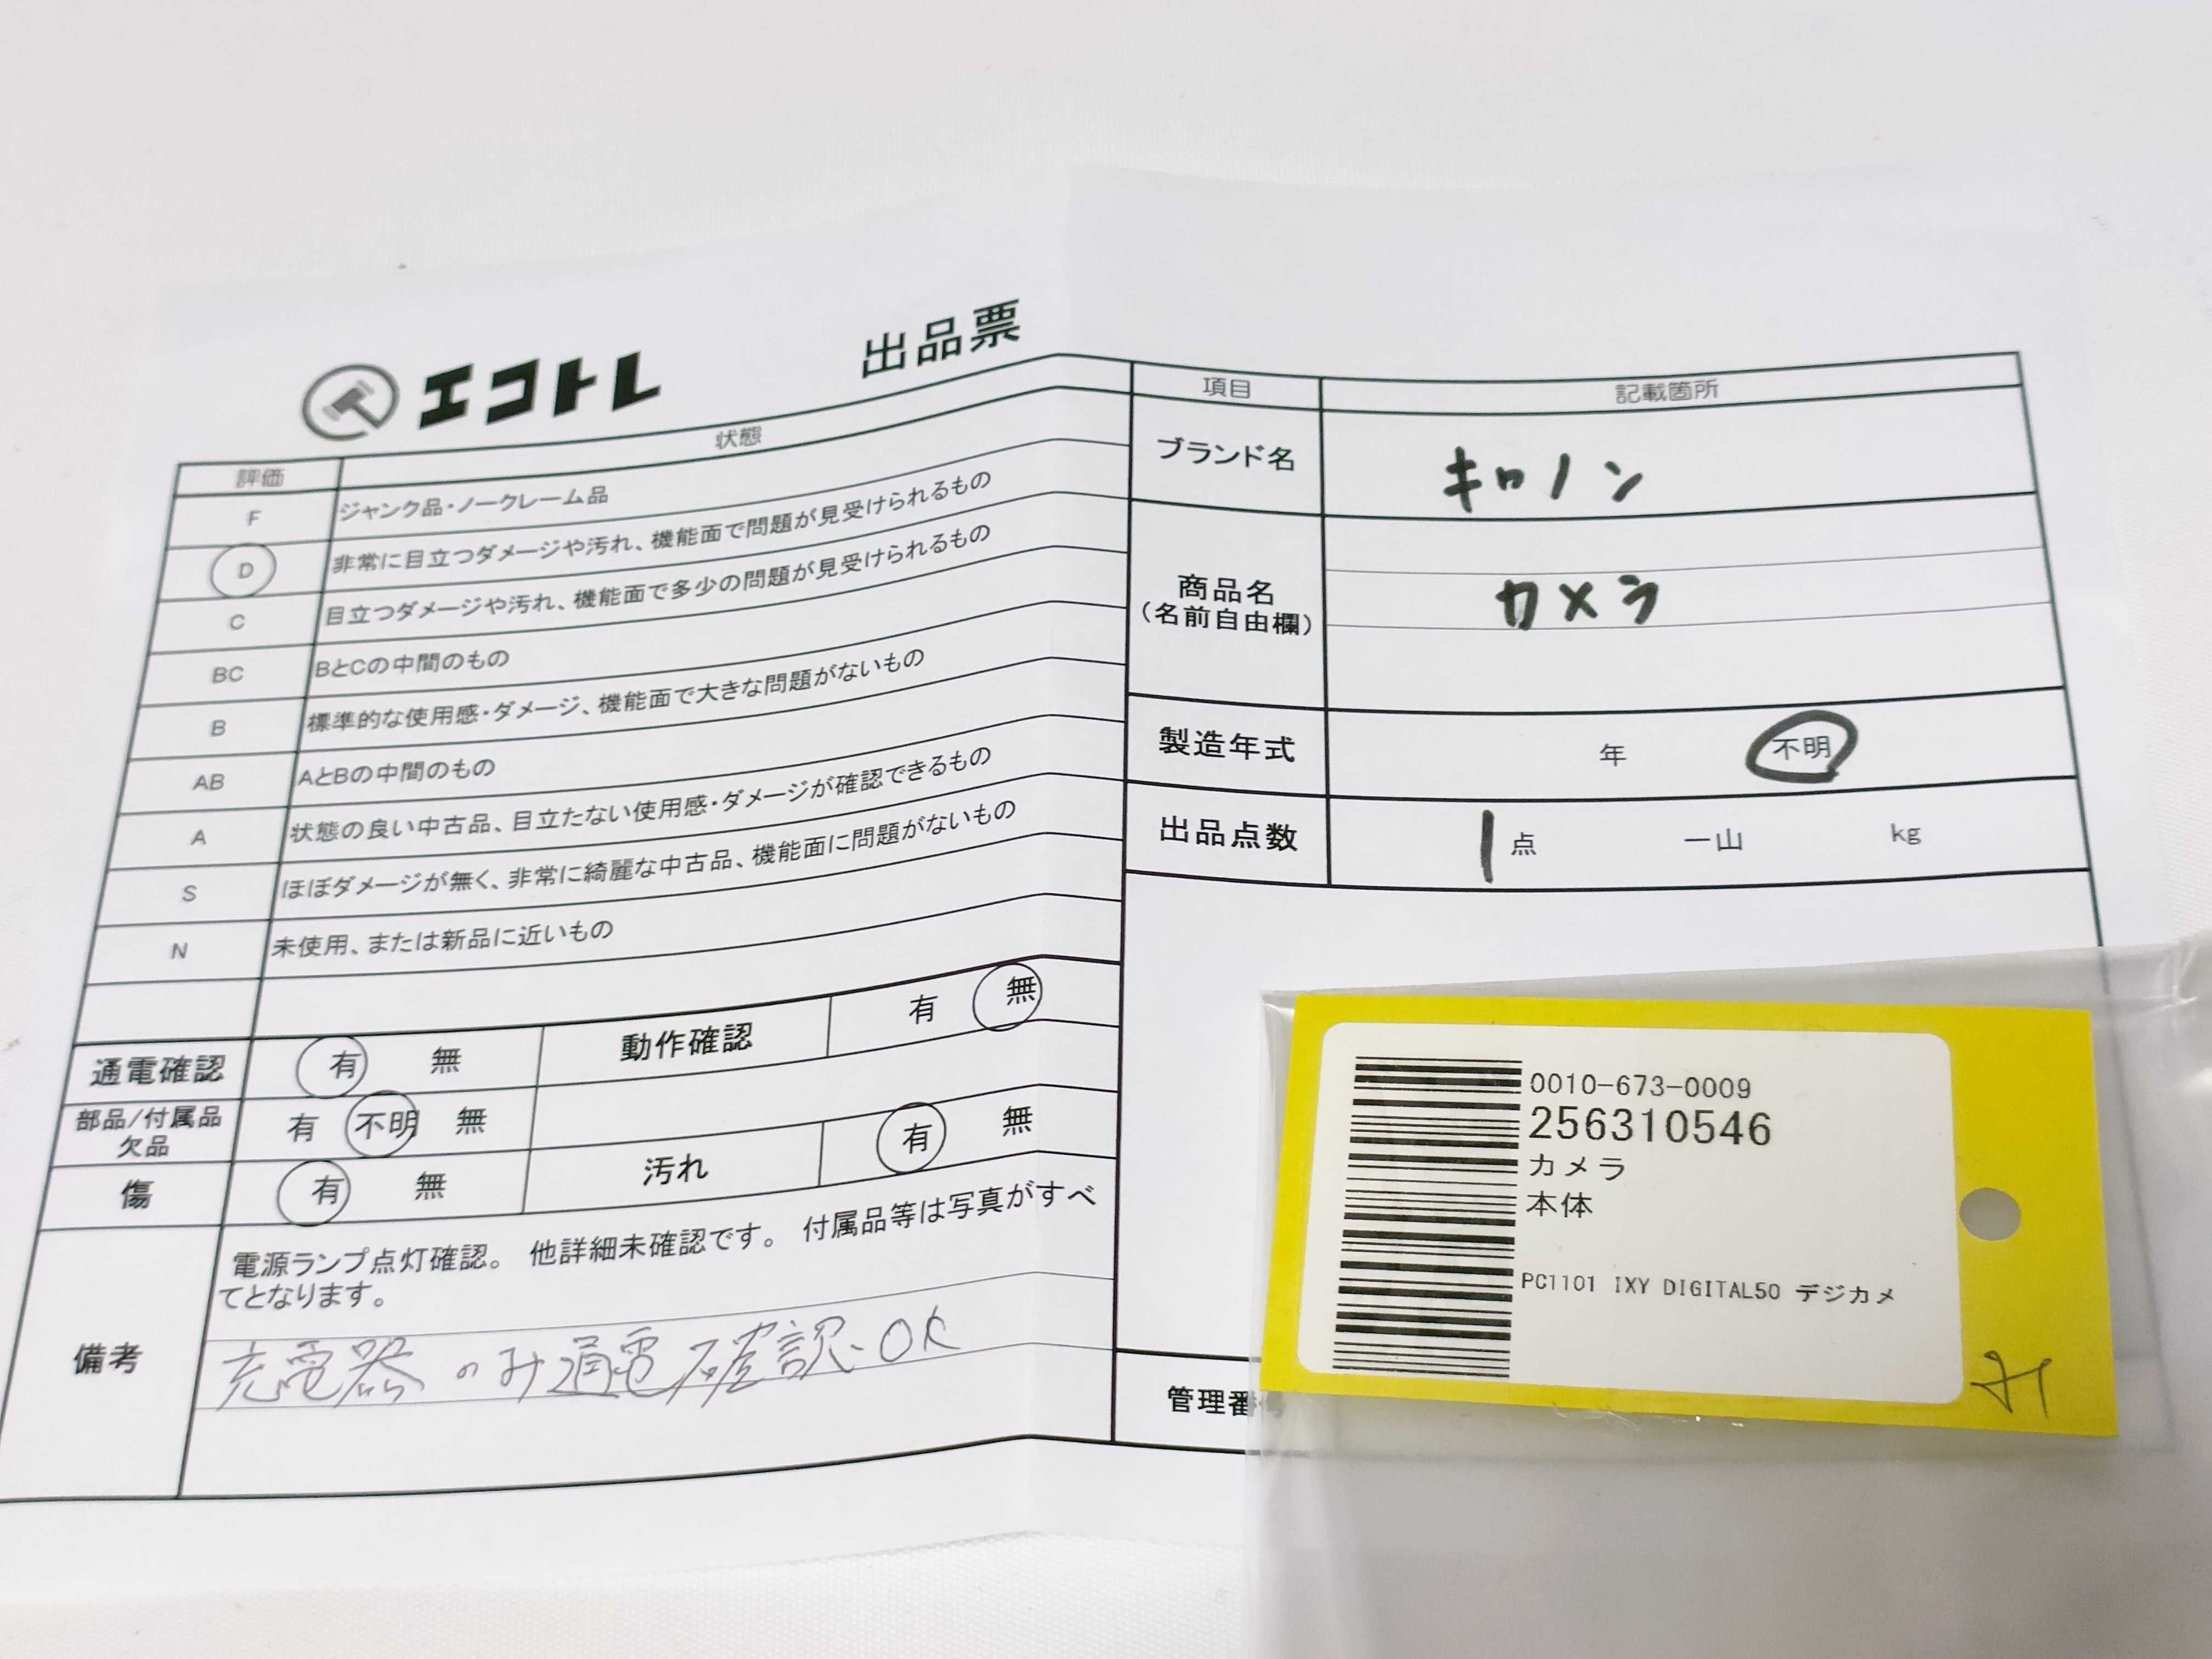 エコトレ 出品票
評価 状態
F ジャンク品・ノークレーム品
D 非常に目立つダメージや汚れ、機能面で問題が見受けられるもの
C 目立つダメージや汚れ、機能面で多少の問題が見受けられるもの
BC BとCの中間のもの
B 標準的な使用感・ダメージ、機能面で大きな問題がないもの
AB AとBの中間のもの
A 状態の良い中古品、目立たない使用感・ダメージが確認できるもの
S ほぼダメージが無く、非常に綺麗な中古品、機能面に問題がないもの
N 未使用、または新品に近いもの
通電確認 有 無 動作確認 有 無
部品/付属品
欠品 有 不明 無
傷 有 無 汚れ 有 無
備考
電源ランプ点灯確認。 他詳細未確認です。 付属品等は写真がすべ
てとなります。
充電器のみ通電確認OK
項目 記載箇所
ブランド名 キャノン
商品名
(名前自由欄)
カメラ
製造年式 年 不明
出品点数 1点 一山 kg
管理番
0010-673-0009
256310546
カメラ
本体
PC1101 IXY DIGITAL50 デジカメ